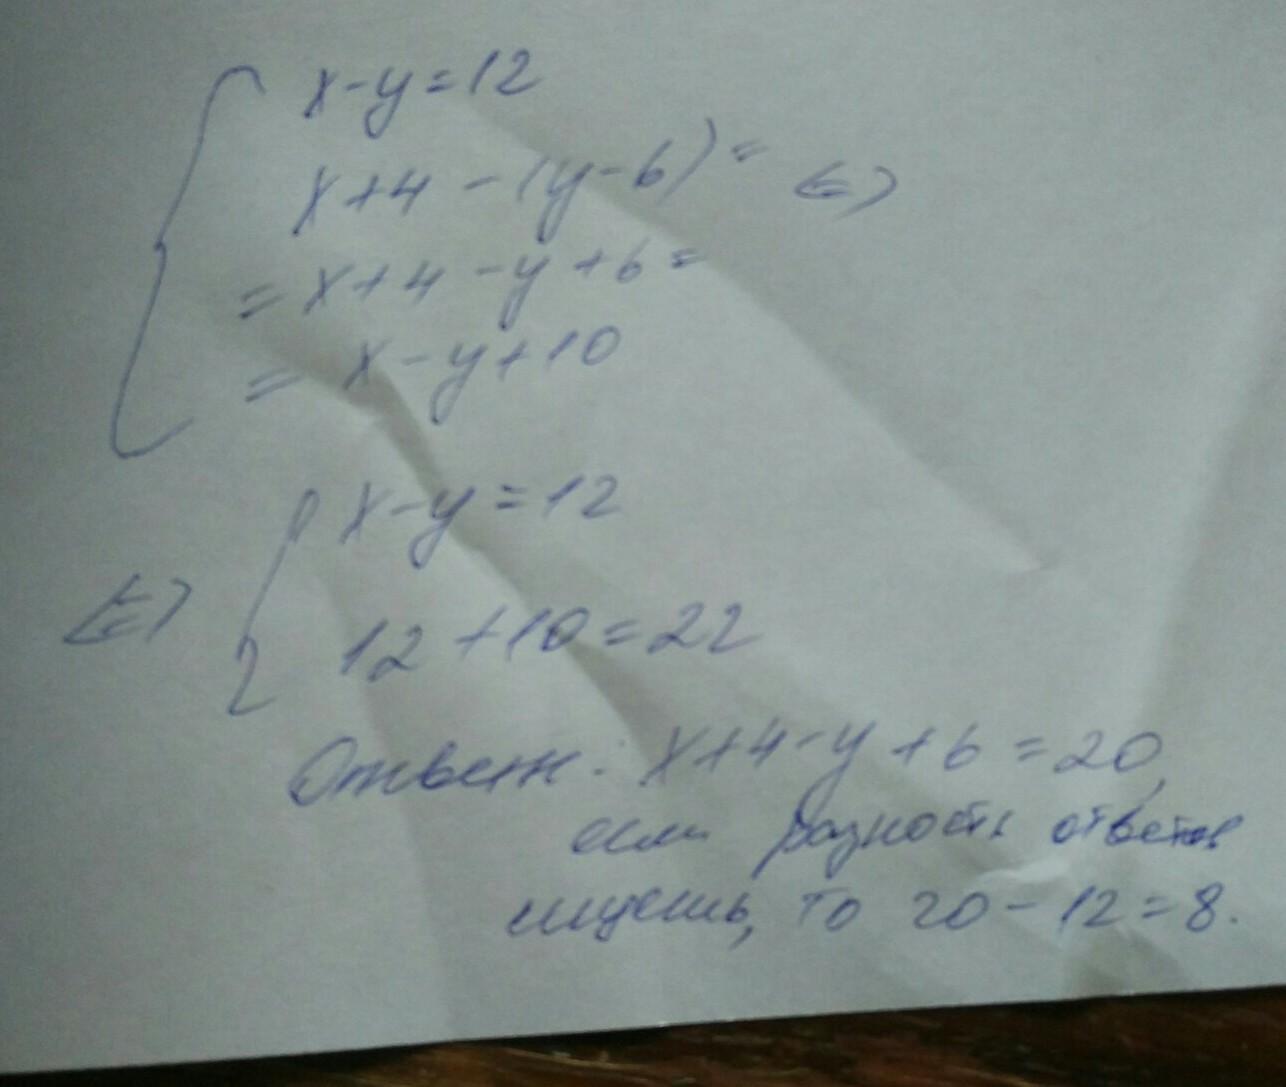 x-y=12
x+4-(y-6)= <=>
=x+4-y+6=
=x-y+10
<=> x-y=12
12+10=22
Ответ: x+4-y+6=20,
если разность ответов
ищешь, то 20-12=8.